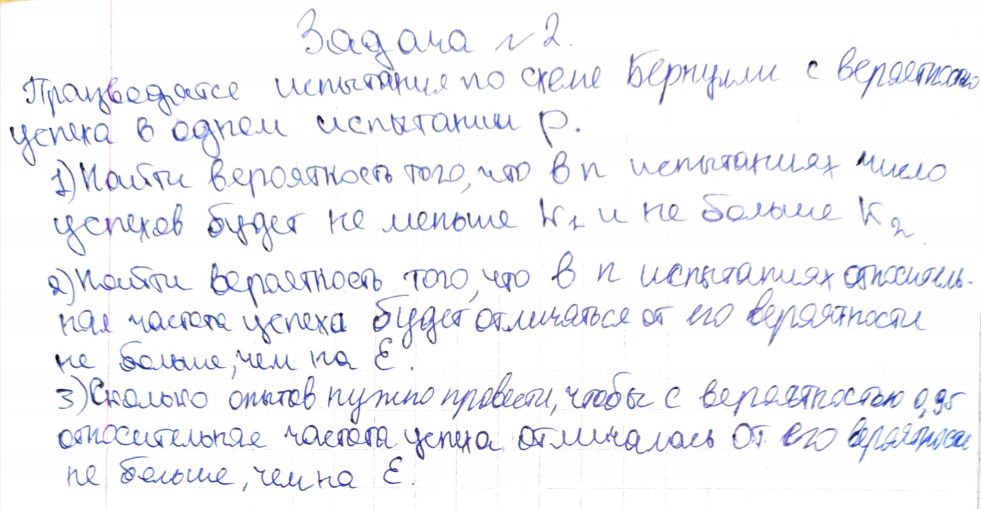 Задача №2.
Производятся испытания по схеме Бернулли с вероятностью
успеха в одном испытании p.
1) Найти вероятность того, что в n испытаниях число
успехов будет не меньше K₁ и не больше K₂.
2) Найти вероятность того, что в n испытаниях относитель-
ная частота успеха будет отличаться от его вероятности
не больше, чем на ε.
3) Сколько опытов нужно провести, чтобы с вероятностью 0,95
относительная частота успеха отличалась от его вероятности
не больше, чем на ε.